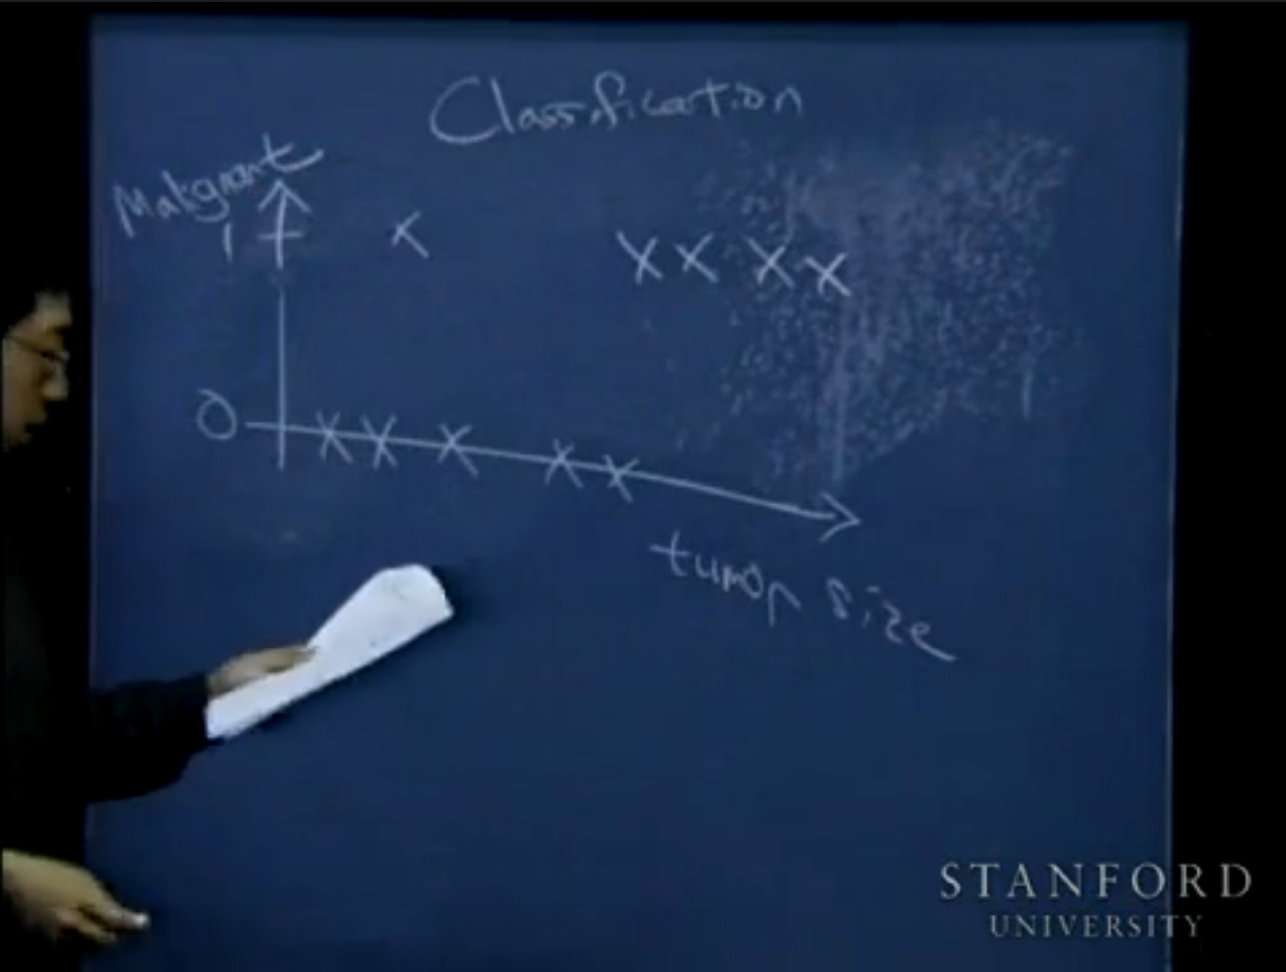 Classification
Malignant
1
0
tumor size
STANFORD
UNIVERSITY